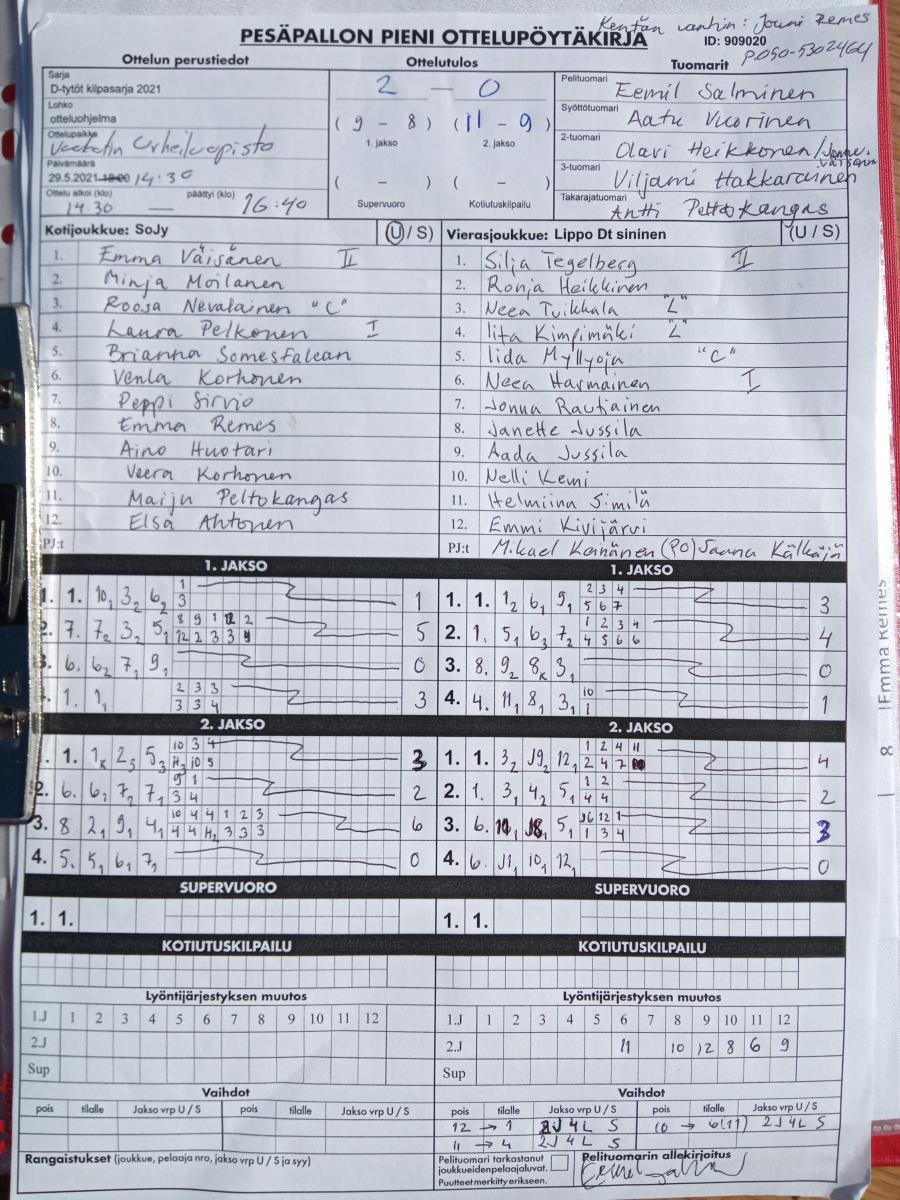 Kentän vanhin: Jouni Remes
PESÄPALLON PIENI OTTELUPÖYTÄKIRJA
ID: 909020
P.050-5302464
Ottelun perustiedot
Ottelutulos
Tuomarit
Sarja
D-tytöt kilpasarja 2021
2 — 0
Pelituomari
Eemil Salminen
Lohko
otteluohjelma
(9 - 8) (11 - 9)
1. jakso 2. jakso
Syöttötuomari
Aatu Vuorinen
Ottelupaikka
Vuokatin Urheiluopisto
2-tuomari
Olavi Heikkonen/
Päivämäärä
29.5.2021 18:00 14:30
( - ) ( - )
Supervuoro Kotiutuskilpailu
3-tuomari
Viljami Hakkarainen
Ottelu alkoi (klo) päättyi (klo)
14.30 — 16:40
Takarajatuomari
Antti Peltokangas
Kotijoukkue: SoJy (U / S)
1. Emma Väisänen II
2. Minja Moilanen
3. Roosa Nevalainen "C"
4. Laura Pelkonen I
5. Brianna Somesfalean
6. Venla Korhonen
7. Peppi Sirviö
8. Emma Remes
9. Aino Huotari
10. Veera Korhonen
11. Maiju Peltokangas
12. Elsa Ahtonen
PJ:t
Vierasjoukkue: Lippo Dt sininen (U / S)
1. Silja Tegelberg II
2. Ronja Heikkinen
3. Neea Tuikkala "L"
4. Iita Kimpimäki "L"
5. Iida Myllyoja "C"
6. Neea Harmainen I
7. Jonna Rautiainen
8. Janette Jussila
9. Aada Jussila
10. Nelli Kemi
11. Helmiina Similä
12. Emmi Kivijärvi
PJ:t Mikael Keinänen (PO) Saana Kälkäjä
1. JAKSO
1. 1. 10₁ 3₂ 6₂ 1
3
1
2. 7. 7₂ 3₂ 5₁ 8 9 1 12 2
12 2 3 3 4
5
3. 6. 6₂ 7₁ 9₁ 0
4. 1. 1₁ 2 3 3
3 3 4
3
1. JAKSO
1. 1. 1₂ 6₁ 9₁ 2 3 4
5 6 7
3
2. 1. 5₁ 6₃ 7₂ 1 2 3 4
4 5 6 6
4
3. 8. 9₂ 8ₖ 3₁ 0
4. 4. 11₁ 8₁ 3₁ 10
1
1
2. JAKSO
1. 1. 1ₖ 2₃ 5₃ 10 3 4
H₂ 10 5
3
2. 6. 6₁ 7₂ 7₁ 9 1
3 4
2
3. 8 2₁ 9₁ 4₁ 10 4 4 1 2 3
4 4 H₂ 3 3 3
6
4. 5. 5₁ 6₁ 7₁ 0
2. JAKSO
1. 1. 3₂ J9₂ 12₁ 1 2 4 11
2 4 7
4
2. 1. 3₁ 4₂ 5₁ 1 2
4 4
2
3. 6. 5₁ J6 12 1
1 3 4
3
4. 6. J1₁ 10₁ 12₁ 0
SUPERVUORO
1. 1.
SUPERVUORO
1. 1.
KOTIUTUSKILPAILU
KOTIUTUSKILPAILU
Lyöntijärjestyksen muutos
1.J 1 2 3 4 5 6 7 8 9 10 11 12
2.J
Sup
Lyöntijärjestyksen muutos
1.J 1 2 3 4 5 6 7 8 9 10 11 12
2.J 11 10 12 8 6 9
Sup
Vaihdot
pois tilalle Jakso vrp U / S pois tilalle Jakso vrp U / S
Vaihdot
pois tilalle Jakso vrp U / S pois tilalle Jakso vrp U / S
12 → 1 2J 4L S 10 → 6(11) 2J 4L S
11 → 4 2J 4L S
Rangaistukset (joukkue, pelaaja nro, jakso vrp U / S ja syy)
Pelituomari tarkastanut
joukkueidenpelaajaluvat.
Puutteet merkitty erikseen.
Pelituomarin allekirjoitus
8 | Emma Remes